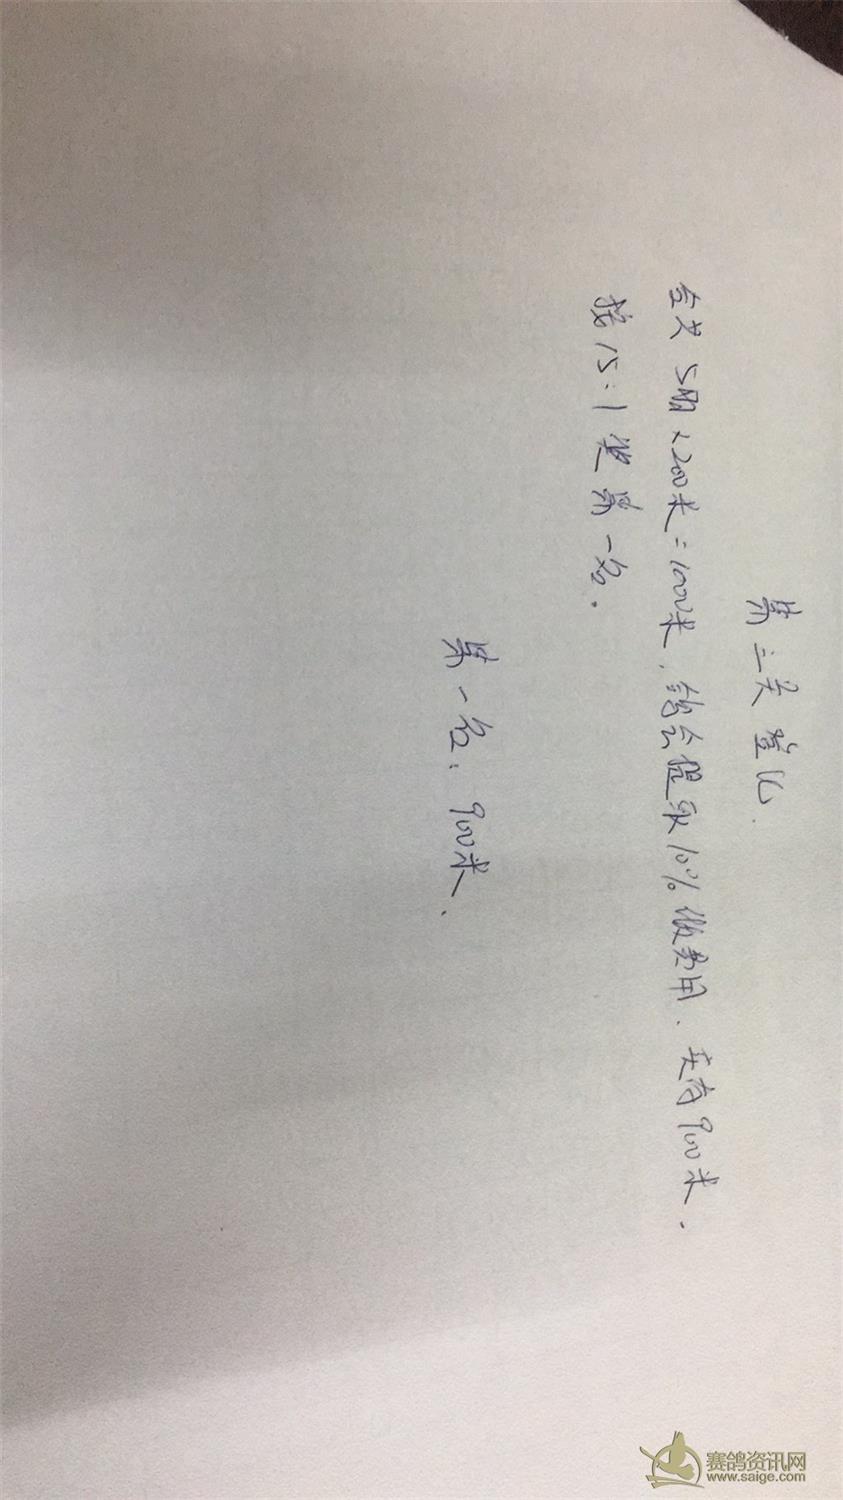 第三关 登记.
全关 5羽×200米=1000米, 鸽会提取10%做费用. 实有900米.
按15:1奖第一名.
第一名: 900米.
赛鸽资讯网
www.saige.com